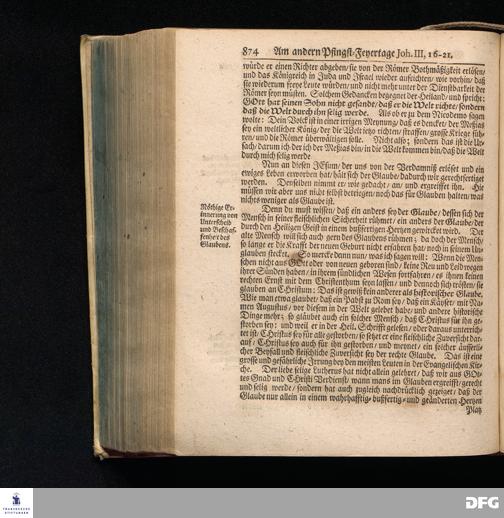 874 Am andern Pfingst-Feyertage Joh. III, 16-21.
würde er einen Richter abgeben/ sie von der Römer Bothmäßigkeit erlösen/
und das Königreich in Juda und Israel wieder aufrichten/ wie vorhin/ daß
sie wiederum freye Leute würden/ und nicht mehr unter der Dienstbarkeit der
Römer seyn müsten. Solchem Gedancken begegnet der Heiland/ und spricht:
GOtt hat seinen Sohn nicht gesandt/ daß er die Welt richte/ sondern
daß die Welt durch ihn selig werde. Als ob er zu dem Nicodemo sagen
wolte: Dein Volck ist in einer irrigen Meynung/ daß es dencket/ der Meßias
sey ein weltlicher König/ der die Welt jetzo richten/ straffen/ grosse Kriege füh-
ren/ und die Römer überwältigen solle. Nicht also; sondern das ist die Ur-
sach/ darum ich der ich der Meßias bin/ in die Welt kommen bin/ daß die Welt
durch mich selig werde
Nun an diesen JEsum/ der uns von der Verdamniß erlöset und ein
ewiges Leben erworben hat/ hält sich der Glaube/ dadurch wir gerechtfertiget
werden. Denselben nimmt er/ wie gedacht/ an/ und ergreiffet ihn. Hie
müssen wir aber uns nicht selbst betriegen/ noch das für Glauben halten/ was
nichts weniger als Glaube ist.
Nöthige Er-
innerung von
Unterscheid
und Beschaf-
fenheit des
Glaubens.
Denn du must wissen/ daß ein anders sey der Glaube/ dessen sich der
Mensch in seiner fleischlichen Sicherheit rühmet/ ein anders der Glaube/ der
durch den Heiligen Geist in einem bußfertigen Hertzen gewircket wird. Der
alte Mensch will sich auch gern des Glaubens rühmen; da doch der Mensch/
so lange er die Krafft der neuen Geburt nicht erfahren hat/ noch in seinem Un-
glauben stecket. So mercke denn nun/ was ich sagen will: Wenn die Men-
schen nicht aus GOtt oder von neuen geboren sind/ keine Reu und Leid wegen
ihrer Sünden haben/ in ihrem sündlichen Wesen fortfahren/ es ihnen keinen
rechten Ernst mit dem Christenthum seyn lassen/ und dennoch sich trösten/ sie
glauben an Christum: Das ist gewiß kein anderer als historischer Glaube.
Wie man etwa glaubet/ daß ein Pabst zu Rom sey/ daß ein Käyser/ mit Na-
men Augustus/ vor diesem in der Welt gelebet habe/ und andere historische
Dinge mehr; so glaubet auch ein solcher Mensch/ daß Christus für ihn ge-
storben sey: und weil er in der Heil. Schrifft gelesen/ oder daraus unterrich-
tet ist/ Christus sey für alle gestorben/ so setzet er eine fleischliche Zuversicht dar-
auf/ Christus sey auch für ihn gestorben/ und meynet/ ein solcher äusserli-
cher Beyfall und fleischliche Zuversicht sey der rechte Glaube. Das ist eine
grosse und gefährliche Irrung bey den meisten Leuten in der Evangelischen Kir-
che. Der liebe selige Lutherus hat nicht allein gelehret/ daß wir aus GOt-
tes Gnad und Christi Verdienst/ wann mans im Glauben ergreifft/ gerecht
und selig werde/ sondern hat auch zugleich nachdrücklich gezeiget/ daß der
Glaube nur allein in einem wahrhafftig-bußfertig-und geänderten Hertzen
Platz
FRANCKESCHE
STIFTUNGEN
DFG